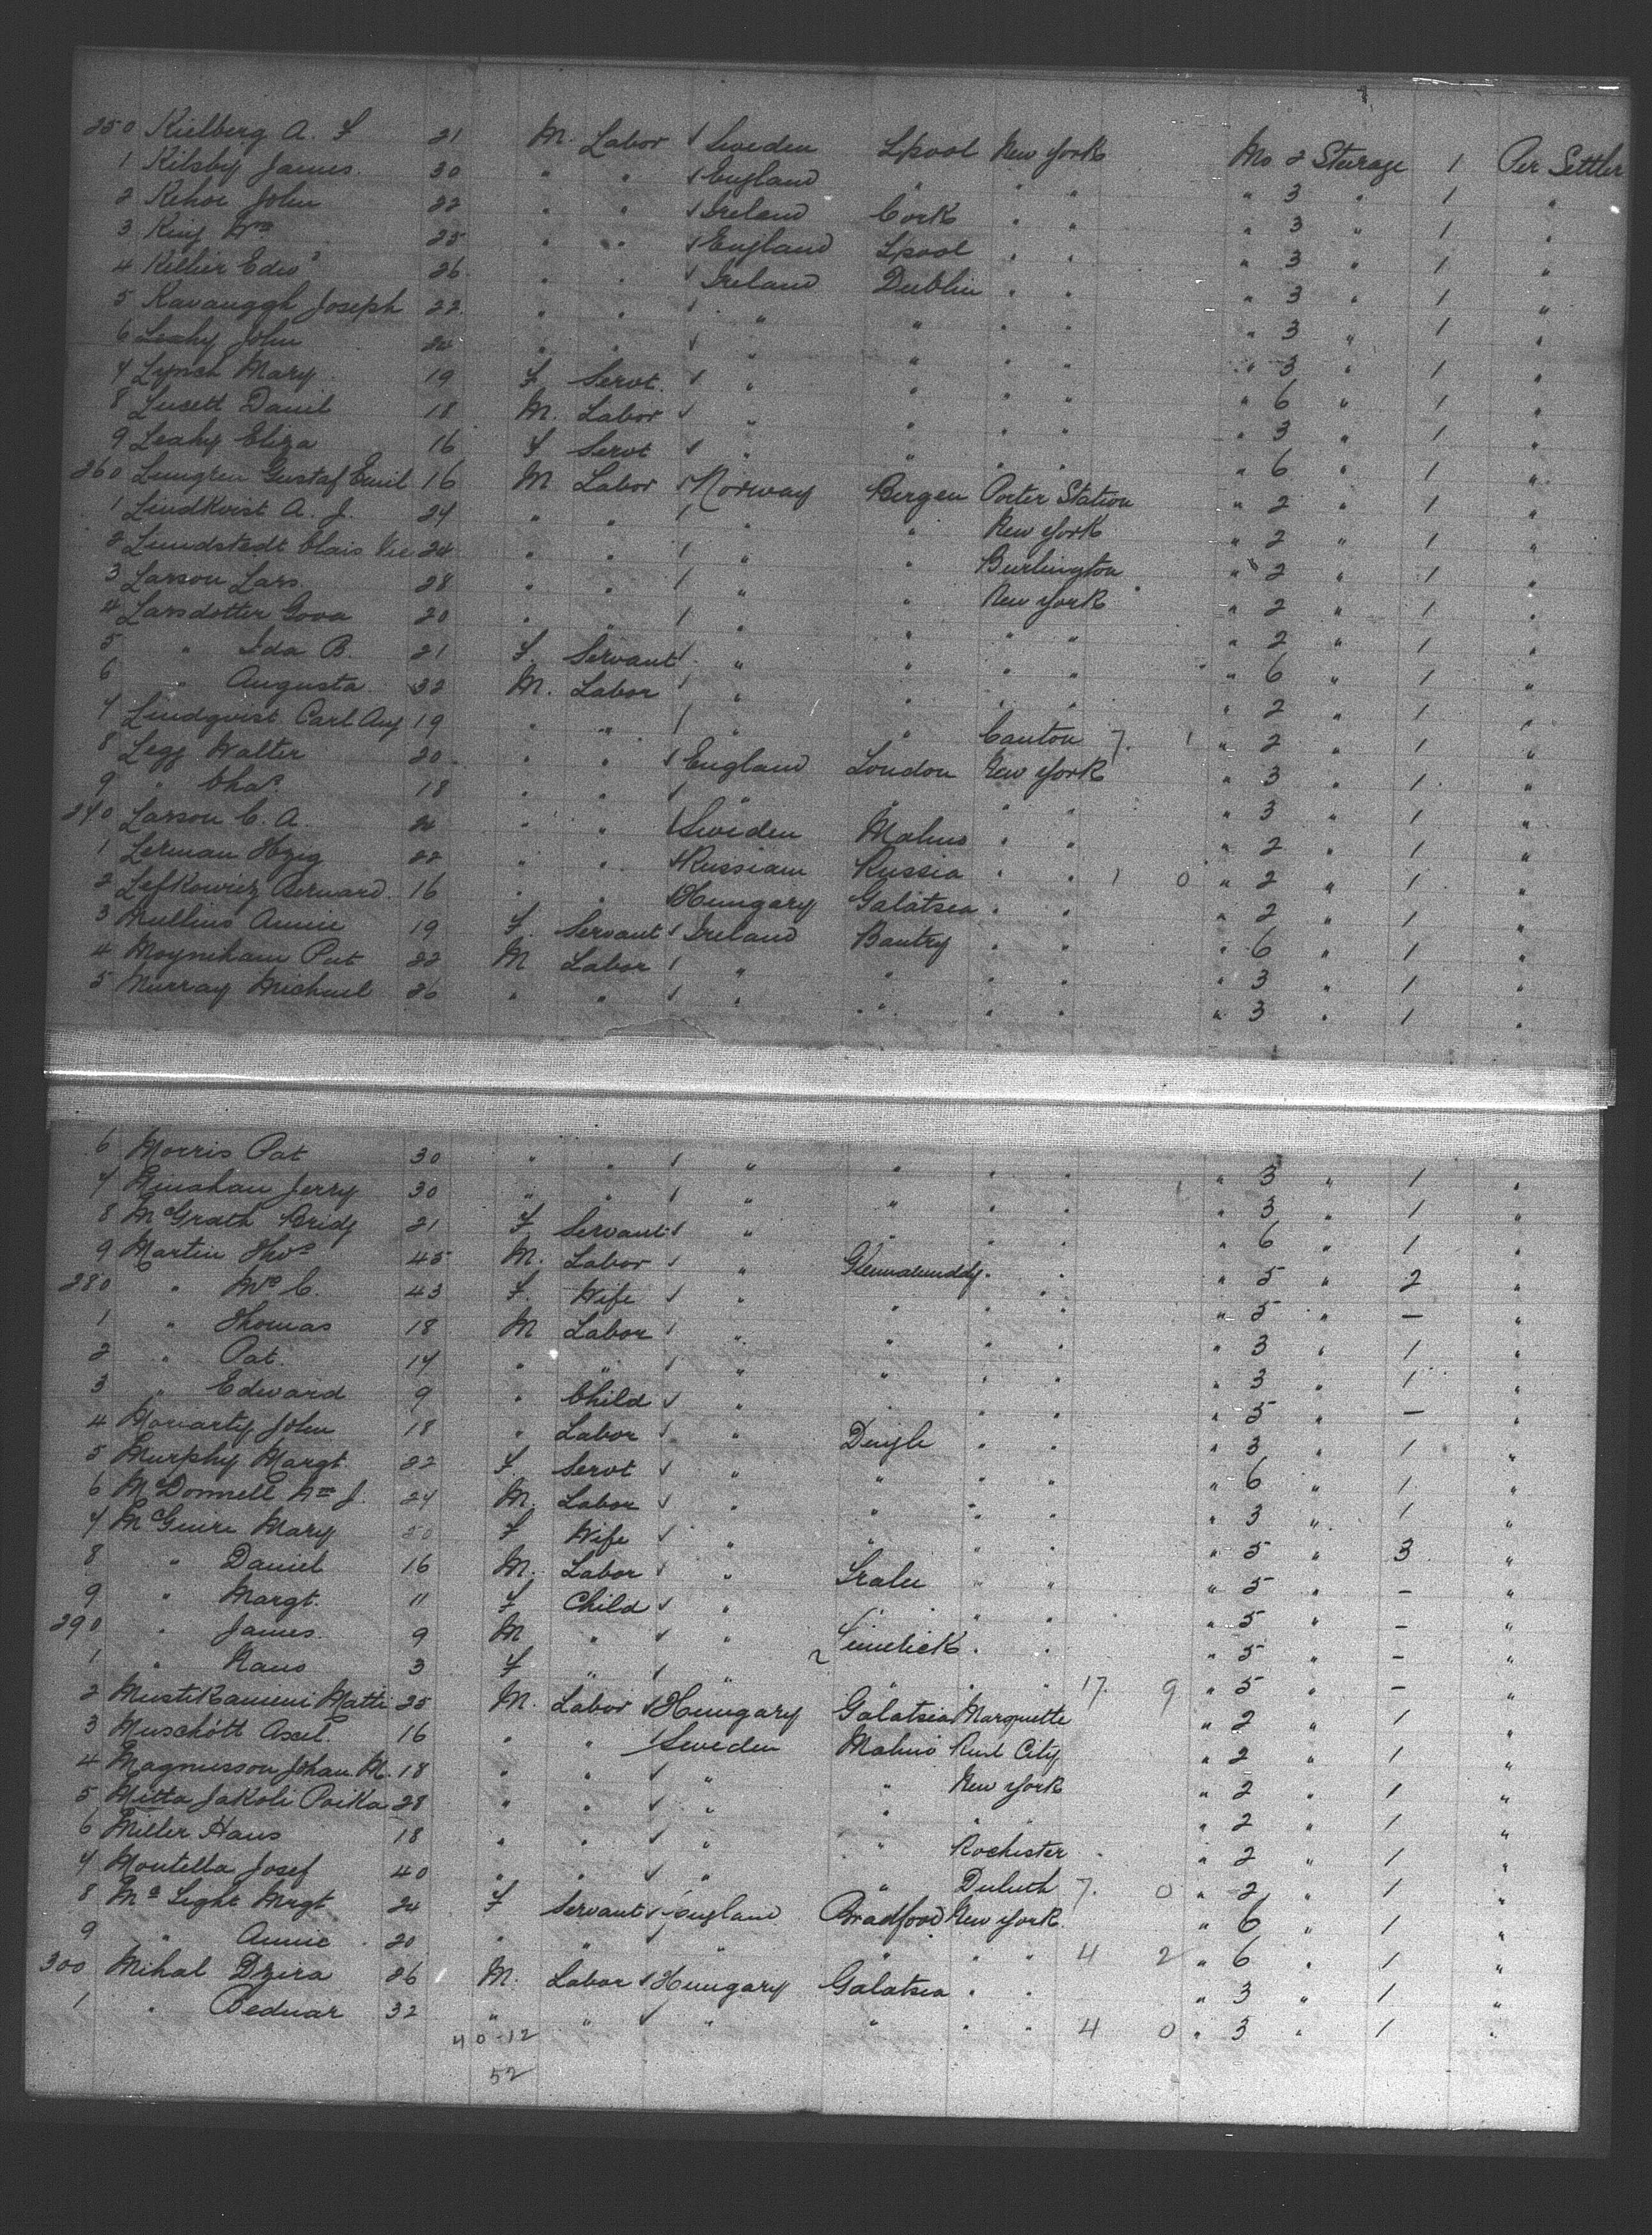 250 Kielberg A. F 21 M. Labor / Sweden Lpool New York Mo 2 Steerage 1 Per Settler
1 Kilsby James. 30 " " / England " " " " 3 " 1 "
2 Kehoe John 22 " " / Ireland Cork " " " 3 " 1 "
3 King Wm 25 " " / England Lpool " " " 3 " 1 "
4 Edwd 26 " " / Ireland Dublin " " " 3 " 1 "
5 Kavanagh Joseph 22. " " / " " " " " 3 " 1 "
6 Leahy John " " / " " " " " 3 " 1 "
7 Lynch Mary 19 F Servt. / " " " " " 6 " 1 "
8 Daniel 18 M. Labor / " " " " " 3 " 1 "
9 Leahy Eliza 16 F Servt / " " " " " 6 " 1 "
260 Gustaf Emil 16 M Labor / Norway Bergen Porter Station " 2 " 1 "
1 Lindkvist A. J. 24 " " / " " New York " 2 " 1 "
2 Lundstedt Clais 24 " " / " " Burlington " 2 " 1 "
3 Larson Lars 28 " " / " " New York " 2 " 1 "
4 Larsdotter 20 " " / " " " " " 2 " 1 "
5 " Ida B. 21 F. Servant / " " " " " 6 " 1 "
6 " Augusta 32 M. Labor / " " " " " 2 " 1 "
7 Lindqvist Carl Aug 19 " " / " " Canton 7. 1 " 2 " 1 "
8 Legg Walter 20 " " / England London New York " 3 " 1 "
9 " Chas. 18 " " / " " " " " 3 " 1 "
270 Larson C. A. " " / Sweden Malmo " " " 2 " 1 "
1 Lerman 22 " " / Russiam Russia " " 1 0 " 2 " 1 "
2 Lefkowicz Bernard. 16 " " / Hungary Galatsea " " " 2 " 1 "
3 Mullins Annie 19 F. Servant / Ireland Bantry " " " 6 " 1 "
4 Moyniham Pat 22 M Labor / " " " " " 3 " 1 "
5 Murray Michael 26 " " / " " " " " 3 " 1 "
6 Morris Pat 30 " " / " " " " " 3 " 1 "
7 Jerry 30 " " / " " " " " 3 " 1 "
8 McGrath Bridg 21 F Servant / " " " " " 6 " 1 "
9 Martin Thos 45 M. Labor / " " " " 5 " 2 "
280 " Mrs C. 43 F. Wife / " " " " " 5 " — "
1 " Thomas 18 M Labor / " " " " " 3 " 1 "
2 " Pat. 14 " " / " " " " " 3 " 1 "
3 " Edward 9 " Child / " " " " " 5 " — "
4 Moriarty John 18 " Labor / " Dingle " " " 3 " 1 "
5 Murphy Margt. 22 F. Servt / " " " " " 6 " 1 "
6 McDonnell Wm J. 24 M. Labor / " " " " " 3 " 1 "
7 McGuire Mary F Wife / " " " " " 5 " 3 "
8 " Daniel 16 M. Labor / " Tralee " " " 5 " - "
9 " Margt. 11 F Child / " " " " " 5 " - "
290 " James. 9 M " / " Limerick " " " 5 " - "
1 " 3 F " / " " " " 17. 9 " 5 " - "
2 Matti 25 M. Labor / Hungary Galatsea Marquette " 2 " 1 "
3 Muschött Axel. 16 " " / Sweden Malmo City " 2 " 1 "
4 Magnusson Johan. M. 18 " " / " " New York " 2 " 1 "
5 Mitta Jakoli Poika 28 " " / " " " " " 2 " 1 "
6 Miller Hans 18 " " / " " Rochester " 2 " 1 "
7 Montella Josef 40 " " / " " Duluth 7. 0 " 2 " 1 "
8 Light Mrgt 24 F Servant / England Bradford New York. " 6 " 1 "
9 " Annie 20 " " / " " " " 4 2 " 6 " 1 "
300 Mihal Dzira 26 M. Labor / Hungary Galatsea " " " 3 " 1 "
1 " Bednar 32 " " / " " " " 4 0 " 3 " 1 "
40-12
52